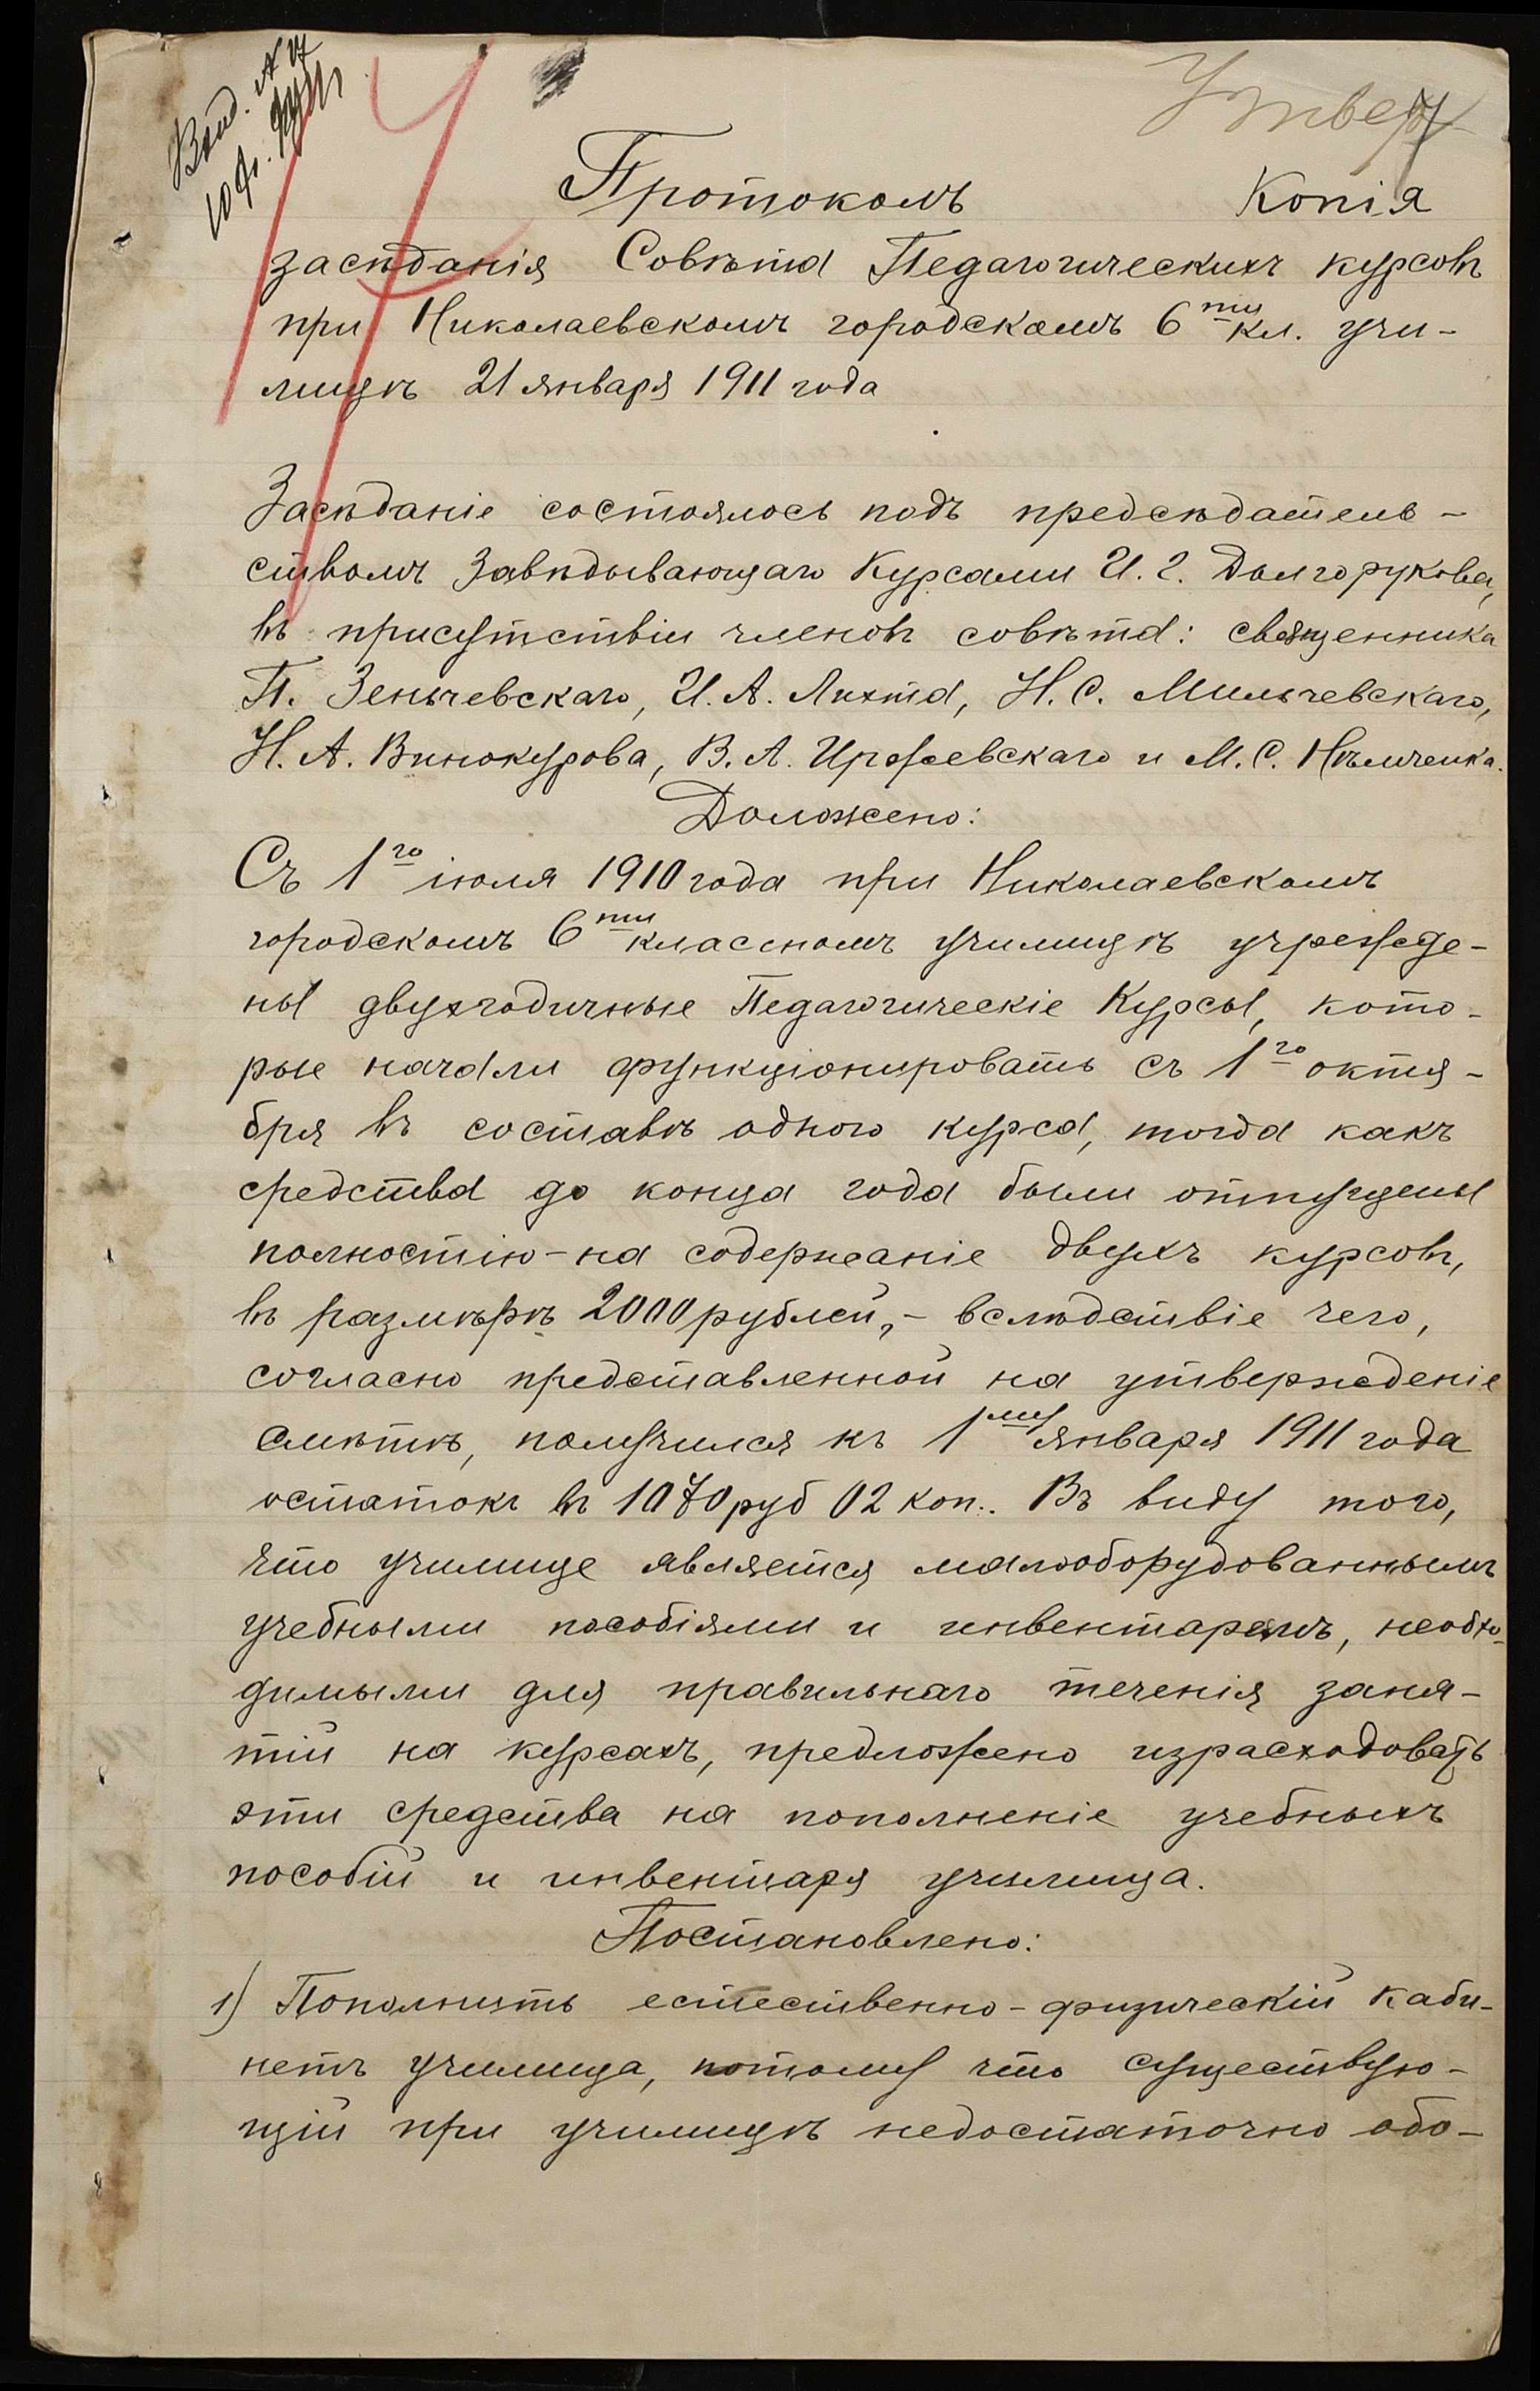 Утвер
Протоколъ Копія
засѣданія Совѣта Педагогическихъ курсовъ
при Николаевскомъ городскомъ 6ти кл. учи-
лищѣ 21 января 1911 года
Засѣданіе состоялось подъ предсѣдатель-
ствомъ Завѣдывающаго Курсами И. Г. Долгорукова,
въ присутствіи членовъ совѣта: священника
П. Зеньчевскаго, И. А. Лихта, Н. С. Мильчевскаго,
Н. А. Винокурова, В. А. и М. С. Нѣмченка.
Доложено:
Съ 1го іюля 1910 года при Николаевскомъ
городскомъ 6ти классномъ училищѣ учрежде-
ны двухгодичные Педагогическіе Курсы, кото-
рые начали функціонировать съ 1го октя-
бря въ составѣ одного курса, тогда какъ
средства до конца года были отпущены
полностію - на содержаніе двухъ курсовъ,
въ размѣрѣ 2000 рублей, - вслѣдствіе чего,
согласно представленной на утвержденіе
смѣтѣ, получился къ 1му января 1911 года
остатокъ въ 1070 руб 02 коп.. Въ виду того,
что училище является малооборудованнымъ
учебными пособіями и инвентаремъ, необхо-
димыми для правильнаго теченія заня-
тій на курсахъ, предложено израсходовать
эти средства на пополненіе учебныхъ
пособій и инвентаря училища.
Постановлено:
1) Пополнить естественно-физическій каби-
нетъ училища, потому что существую-
щій при училищѣ недостаточно обо-